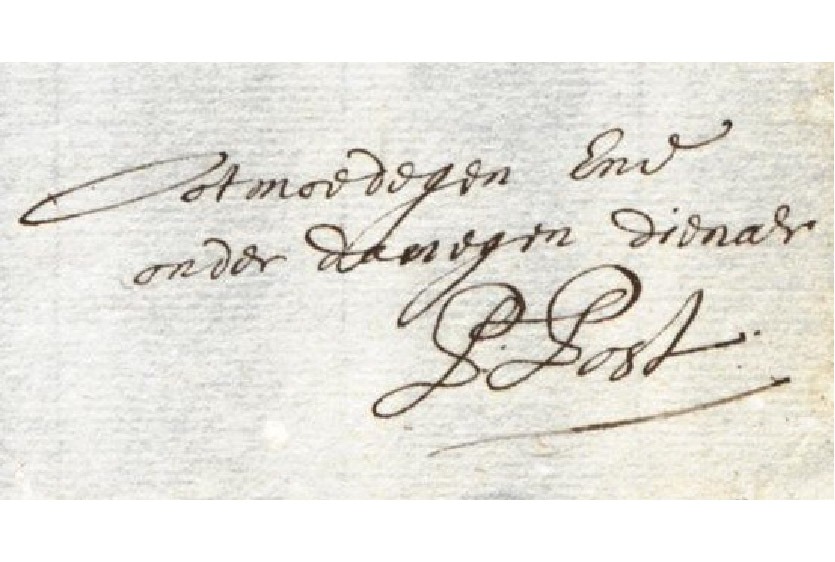 Ootmoedegen End
onder danegen dienaer
P. Post